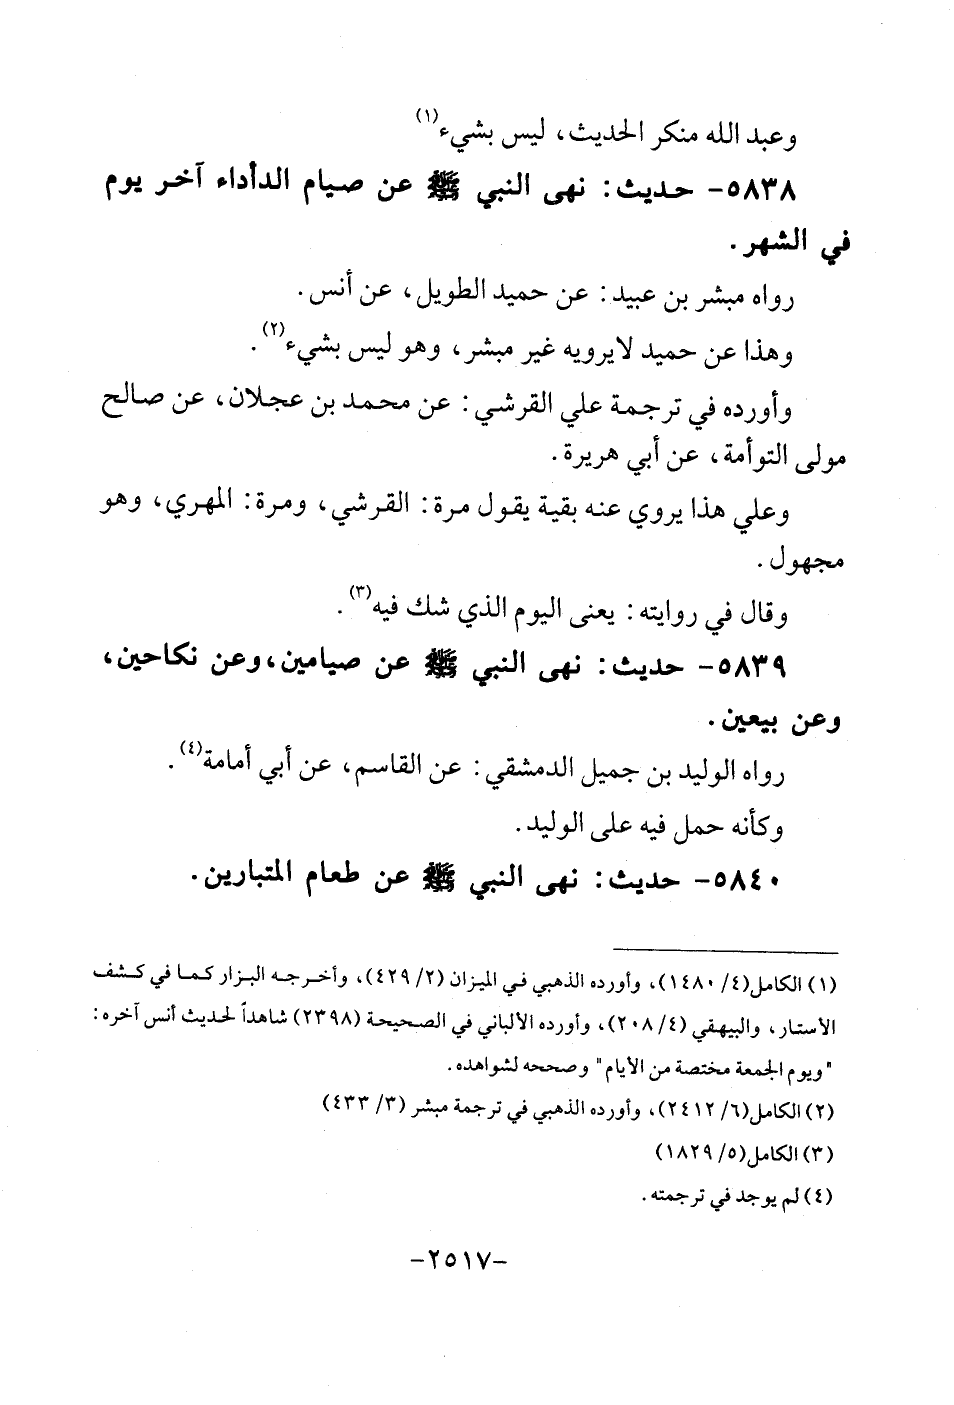 وعبد الله منكر الحديث، ليس بشيء(١)
٥٨٣٨- حديث: نهى النبي ﷺ عن صيام الدأداء آخر يوم
في الشهر.
رواه مبشر بن عبيد: عن حميد الطويل، عن أنس.
وهذا عن حميد لايرويه غير مبشر، وهو ليس بشيء(٢).
وأورده في ترجمة علي القرشي: عن محمد بن عجلان، عن صالح
مولى التوأمة، عن أبي هريرة.
وعلي هذا يروي عنه بقية يقول مرة: القرشي، ومرة: المهري، وهو
مجهول.
وقال في روايته: يعنى اليوم الذي شك فيه(٣).
٥٨٣٩- حديث: نهى النبي ﷺ عن صيامين،وعن نكاحين،
وعن بيعين.
رواه الوليد بن جميل الدمشقي: عن القاسم، عن أبي أمامة(٤).
وكأنه حمل فيه على الوليد.
٥٨٤٠- حديث: نهى النبي ﷺ عن طعام المتبارين.
(١) الكامل(٤/ ١٤٨٠)، وأورده الذهبي في الميزان (٢/ ٤٢٩)، وأخرجه البزار كما في كشف
الأستار، والبيهقي (٤/ ٢٠٨)، وأورده الألباني في الصحيحة (٢٣٩٨) شاهداً لحديث أنس آخره:
"ويوم الجمعة مختصة من الأيام" وصححه لشواهده.
(٢) الكامل(٦/ ٢٤١٢)، وأورده الذهبي في ترجمة مبشر (٣/ ٤٣٣)
(٣) الكامل(٥/ ١٨٢٩)
(٤) لم يوجد في ترجمته.
-٢٥١٧-